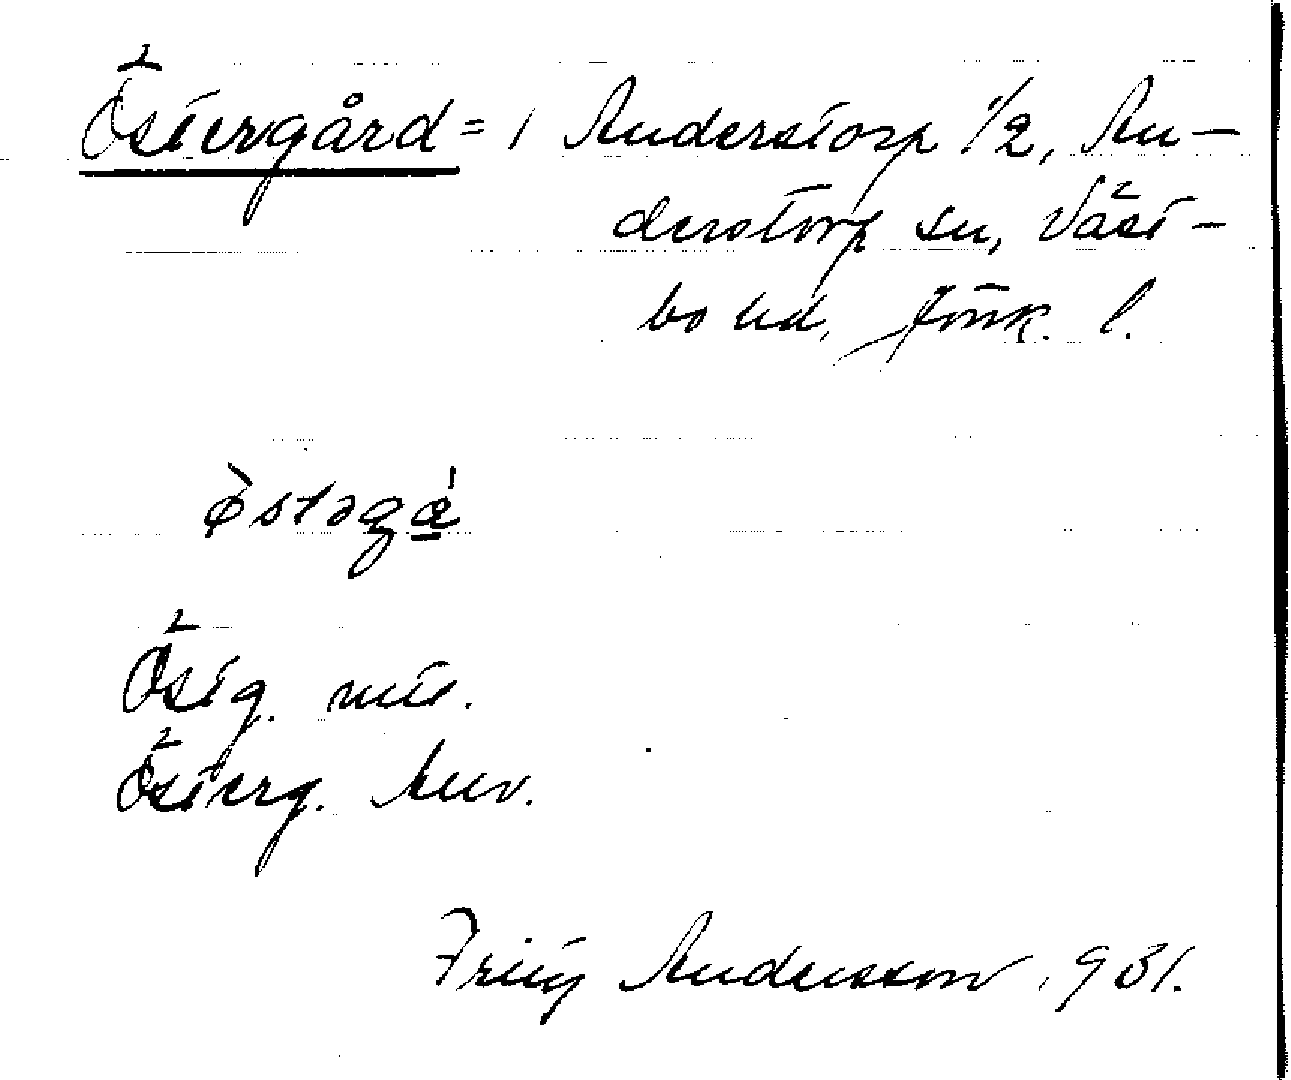 Östergård = i Anderstorp 1/2, An-
derstorp sn, Väst-
bo hd, Jönk. l.
östəgå
Östg. mtl.
Österg.
Fritz Andersson, 931.